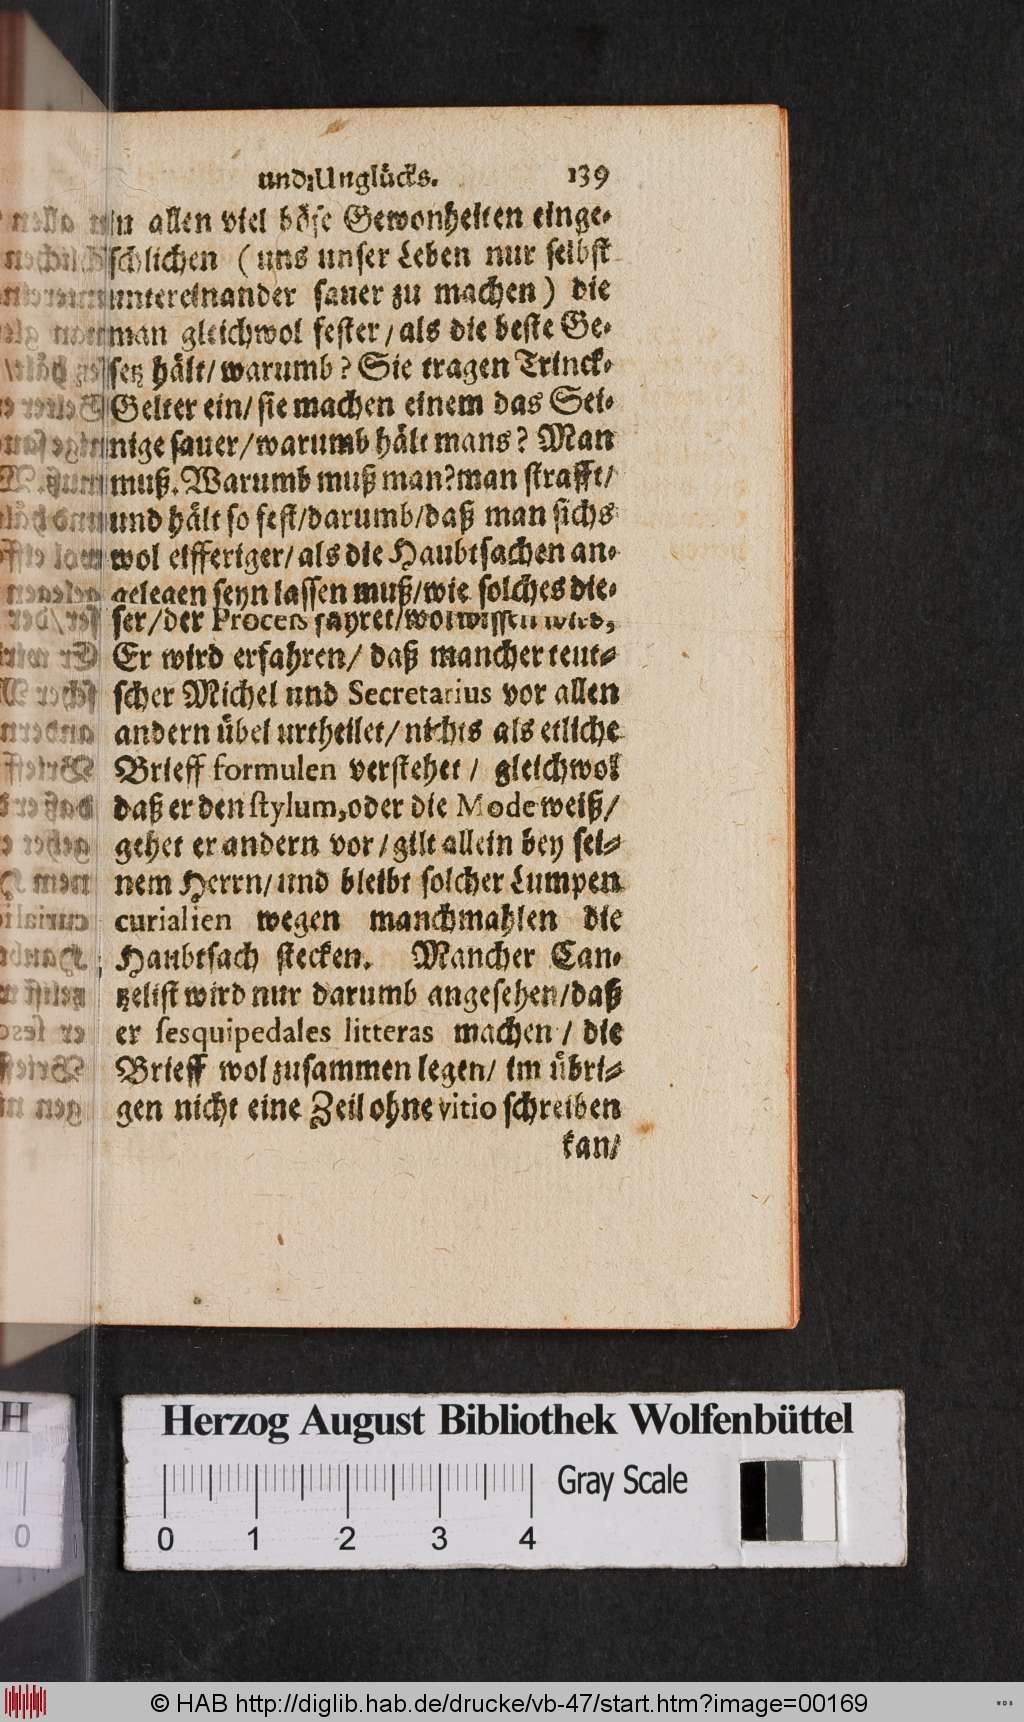 und Unglücks. 139
in allen viel böse Gewonheiten einge-
schlichen (uns unser Leben nur selbst
untereinander sauer zu machen) die
man gleichwol fester/als die beste Ge-
setz hält/warumb? Sie tragen Trinck-
Gelter ein/sie machen einem das Sei-
nige sauer/warumb hält mans? Man
muß. Warumb muß man?man strafft/
und hält so fest/darumb/daß man sichs
wol eifferiger/als die Haubtsachen an-
gelegen seyn lassen muß/wie solches die-
ser/der Procels fahret/wol wissen wird,
Er wird erfahren/ daß mancher teut-
scher Michel und Secretarius vor allen
andern übel urtheilet/nichts als etliche
Brieff formulen verstehet/ gleichwol
daß er den stylum, oder die Mode weiß/
gehet er andern vor/gilt allein bey sei-
nem Herrn/und bleibt solcher Lumpen
curialien wegen manchmahlen die
Haubtsach stecken. Mancher Can-
tzelist wird nur darumb angesehen/daß
er sesquipedales litteras machen/ die
Brieff wol zusammen legen/ im übri-
gen nicht eine Zeil ohne vitio schreiben
kan/
Herzog August Bibliothek Wolfenbüttel
Gray Scale
0 1 2 3 4
© HAB http://diglib.hab.de/drucke/vb-47/start.htm?image=00169